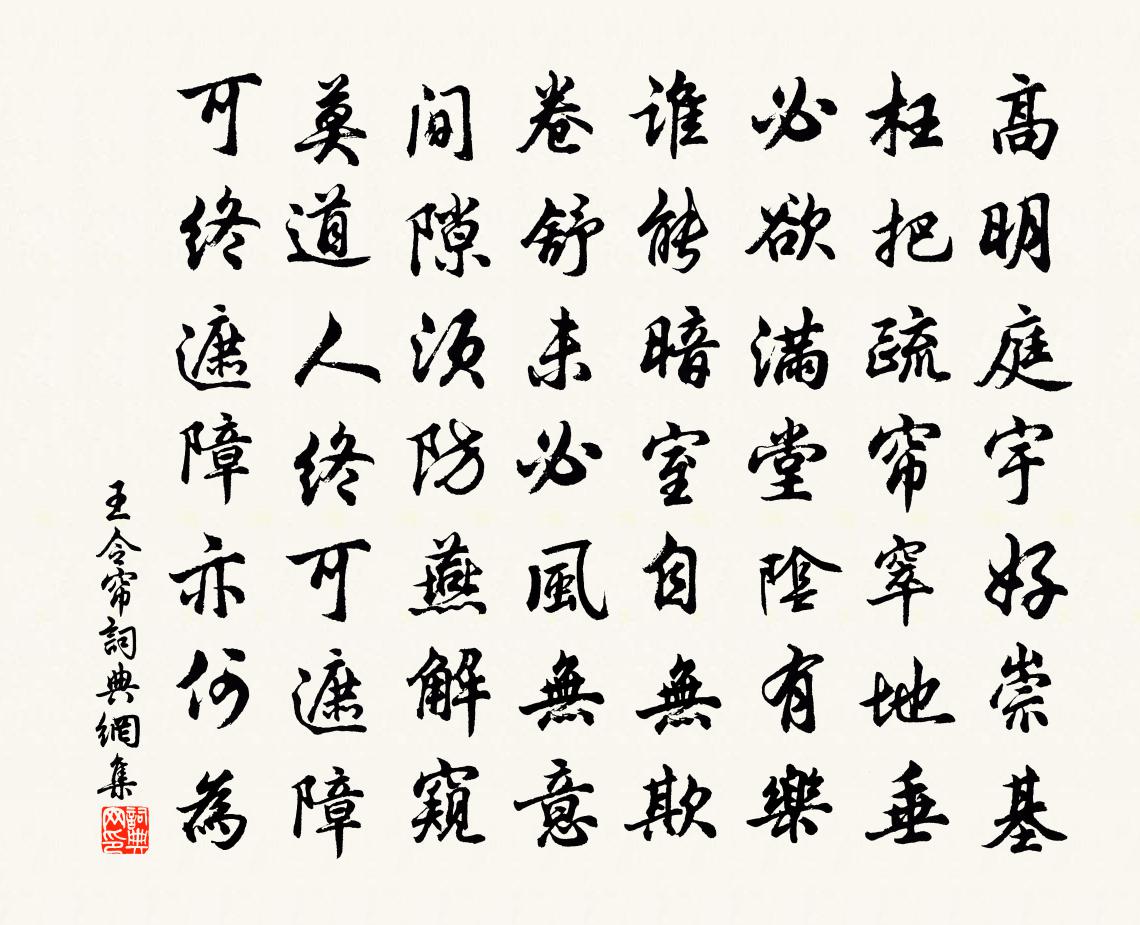 高明庭宇好崇基
枉把疏帘窣地垂
必欲滿堂陰有樂
谁能暗室自無欺
卷舒未必風無意
間隙須防燕解窺
莫道人终可遮障
可终遮障亦何為
王令帘詞典網集
詞典网印